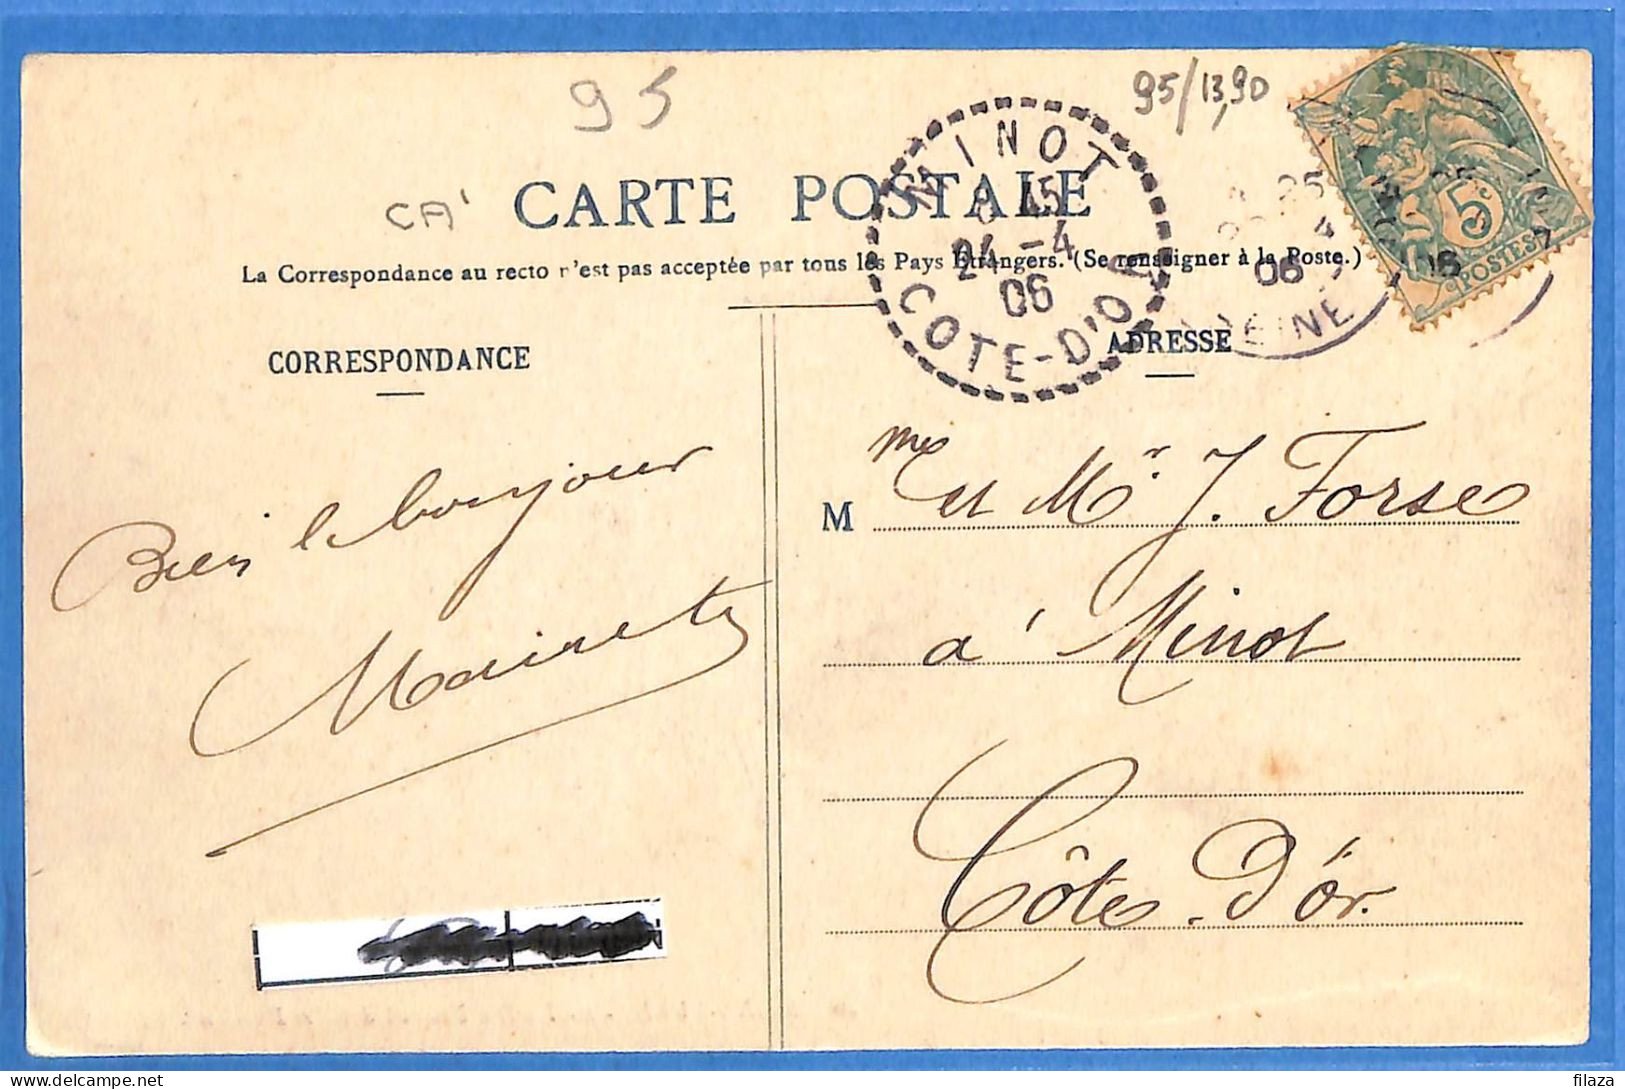 95
95/13,90
CA'
CARTE POSTALE
MINOT
8 45
24-4
06
COTE-D'OR
25
06
SEINE
5c
POSTES
La Correspondance au recto n'est pas acceptée par tous les Pays Étrangers. (Se renseigner à la Poste.)
CORRESPONDANCE
ADRESSE
Bien le bonjour
M me et Mr. J. Forse
à Minot
Côte-d'Or.
filaza